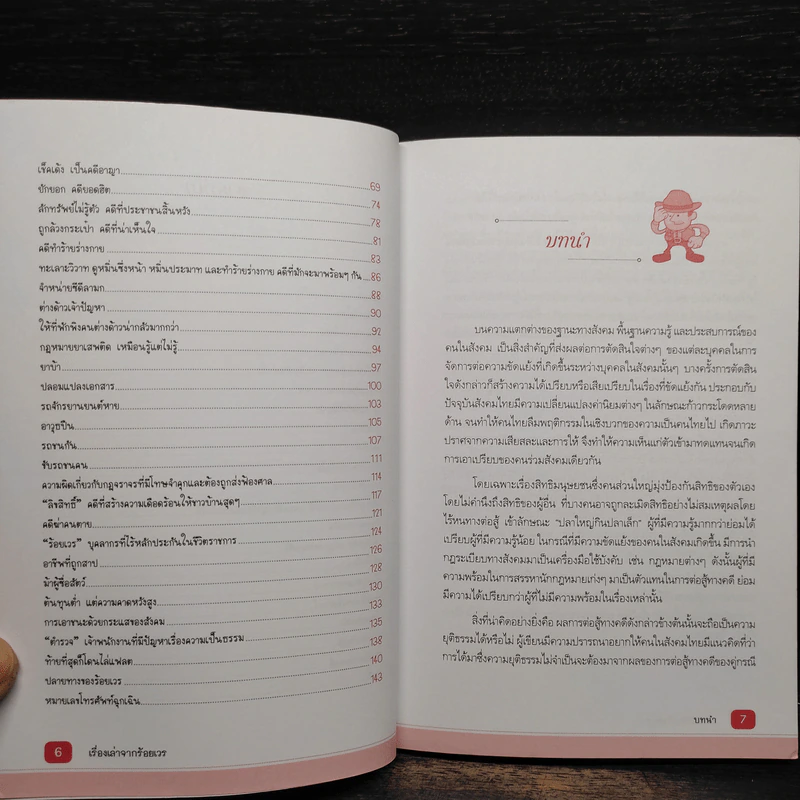 เช็คเด้ง เป็นคดีอาญา 69
ยักยอก คดียอดฮิต 74
ลักทรัพย์ไม่รู้ตัว คดีที่ประชาชนสิ้นหวัง 78
ถูกล้วงกระเป๋า คดีที่น่าเห็นใจ 81
คดีทำร้ายร่างกาย 83
ทะเลาะวิวาท ดูหมิ่นซึ่งหน้า หมิ่นประมาท และทำร้ายร่างกาย คดีที่มักจะมาพร้อมๆ กัน 86
จำหน่ายซีดีลามก 88
ต่างด้าวเจ้าปัญหา 90
ให้ที่พักพิงคนต่างด้าวน่ากลัวมากกว่า 92
กฎหมายยาเสพติด เหมือนรู้แต่ไม่รู้ 94
ยาบ้า 97
ปลอมแปลงเอกสาร 100
รถจักรยานยนต์หาย 103
อาวุธปืน 105
รถชนกัน 107
ขับรถชนคน 111
ความผิดเกี่ยวกับกฎจราจรที่มีโทษจำคุกและต้องถูกส่งฟ้องศาล 114
"ลิขสิทธิ์" คดีที่สร้างความเดือดร้อนให้ชาวบ้านสุดๆ 117
คดีฆ่าคนตาย 121
"ร้อยเวร" บุคลากรที่ไร้หลักประกันในชีวิตราชการ 124
อาชีพที่ถูกสาป 126
ม้าผู้ซื่อสัตว์ 128
ต้นทุนต่ำ แต่ความคาดหวังสูง 130
การเอาชนะด้วยกระแสของสังคม 133
"ตำรวจ" เจ้าพนักงานที่มีปัญหาเรื่องความเป็นธรรม 135
ท้ายที่สุดก็โดนไล่แฟลต 138
ปลายทางของร้อยเวร 140
หมายเลขโทรศัพท์ฉุกเฉิน 143
6 เรื่องเล่าจากร้อยเวร
บทนำ
บนความแตกต่างของฐานะทางสังคม พื้นฐานความรู้ และประสบการณ์ของ
คนในสังคม เป็นสิ่งสำคัญที่ส่งผลต่อการตัดสินใจต่างๆ ของแต่ละบุคคลในการ
จัดการต่อความขัดแย้งที่เกิดขึ้นระหว่างบุคคลในสังคมนั้นๆ บางครั้งการตัดสิน
ใจดังกล่าวก็สร้างความได้เปรียบหรือเสียเปรียบในเรื่องที่ขัดแย้งกัน ประกอบกับ
ปัจจุบันสังคมไทยมีความเปลี่ยนแปลงค่านิยมต่างๆ ในลักษณะก้าวกระโดดหลาย
ด้าน จนทำให้คนไทยลืมพฤติกรรมในเชิงบวกของความเป็นคนไทยไป เกิดภาวะ
ปราศจากความเสียสละและการให้ จึงทำให้ความเห็นแก่ตัวเข้ามาทดแทนจนเกิด
การเอาเปรียบของคนร่วมสังคมเดียวกัน
โดยเฉพาะเรื่องสิทธิมนุษยชนซึ่งคนส่วนใหญ่มุ่งป้องกันสิทธิของตัวเอง
โดยไม่คำนึงถึงสิทธิของผู้อื่น ที่บางคนอาจถูกละเมิดสิทธิอย่างไม่สมเหตุผลโดย
ไร้หนทางต่อสู้ เข้าลักษณะ "ปลาใหญ่กินปลาเล็ก" ผู้ที่มีความรู้มากกว่าย่อมได้
เปรียบผู้ที่มีความรู้น้อย ในกรณีที่มีความขัดแย้งของคนในสังคมเกิดขึ้น มีการนำ
กฎระเบียบทางสังคมมาเป็นเครื่องมือใช้บังคับ เช่น กฎหมายต่างๆ ดังนั้นผู้ที่มี
ความพร้อมในการสรรหานักกฎหมายเก่งๆ มาเป็นตัวแทนในการต่อสู้ทางคดี ย่อม
มีความได้เปรียบกว่าผู้ที่ไม่มีความพร้อมในเรื่องเหล่านั้น
สิ่งที่น่าคิดอย่างยิ่งคือ ผลการต่อสู้ทางคดีดังกล่าวข้างต้นนั้นจะถือเป็นความ
ยุติธรรมได้หรือไม่ ผู้เขียนมีความปรารถนาอยากให้คนในสังคมไทยมีแนวคิดที่ว่า
การได้มาซึ่งความยุติธรรมไม่จำเป็นจะต้องมาจากผลของการต่อสู้ทางคดีของคู่กรณี
บทนำ 7